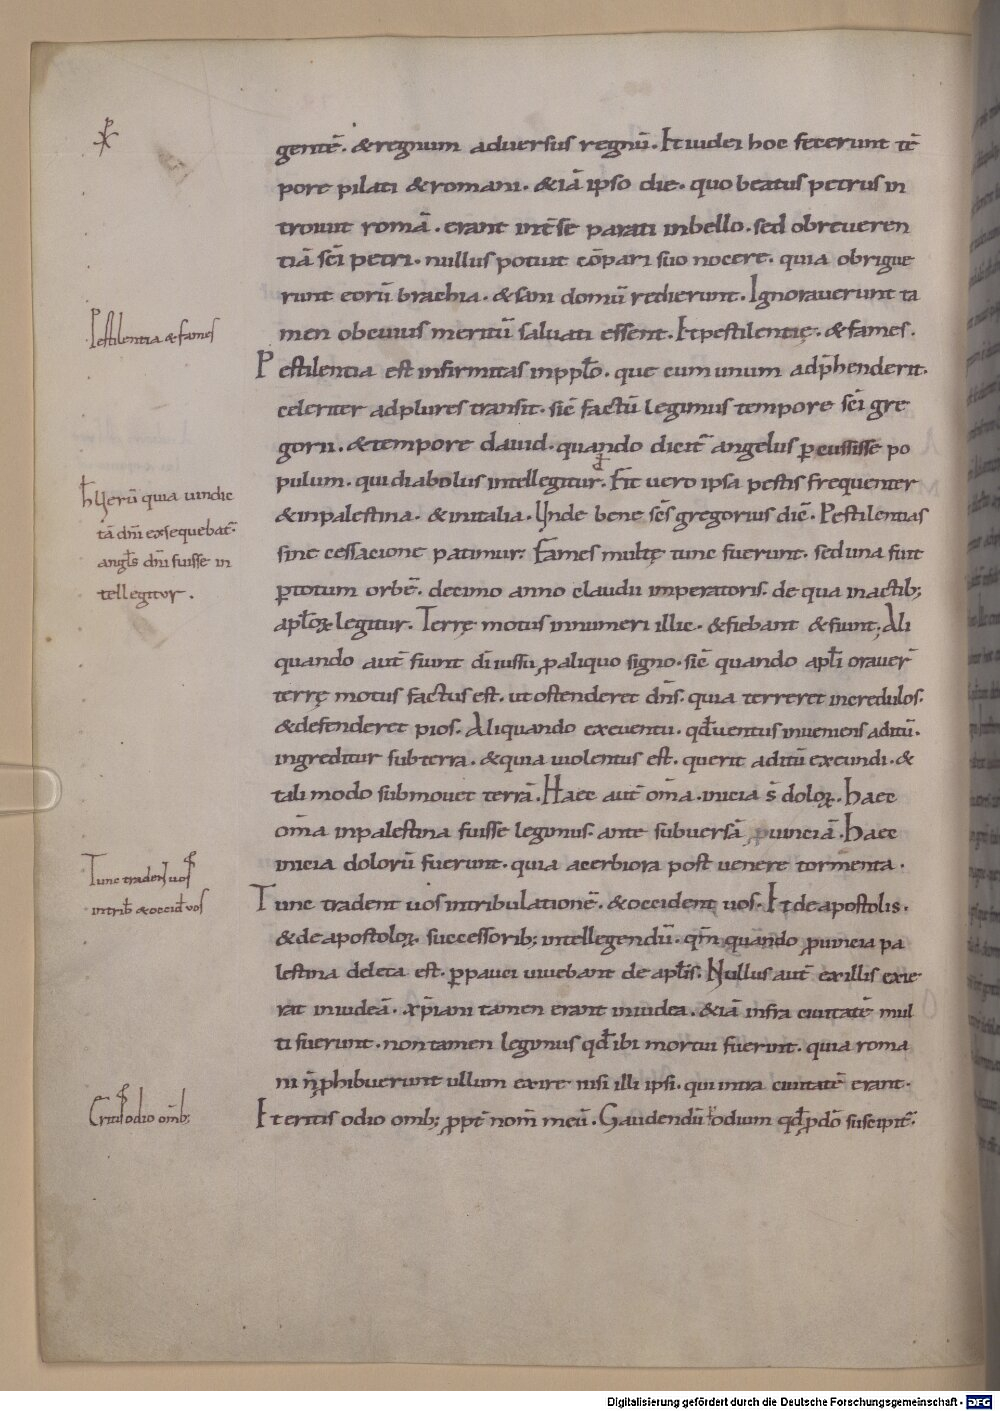 gentē. & regnum aduersus regnū. Et iudei hoc fecerunt tē
pore pilati & romani. & iā ipso die. quo beatus petrus in
trouit romā. erant int̄ se parati in bello. sed ob reueren
tiā sc̄i petri. nullus potuit cōpari suo nocere. quia obrigue
runt eorū brachia. & sani domū redierunt. Ignorauerunt ta
men ob cuius meritū saluati essent. Et pestilentię. & fames.
Pestilentia & fames
Pestilentia est infirmitas in pplo. que cum unum adp̄henderit.
celeriter ad plures transit. sic̄ factū legimus tempore sc̄i gre
gorii. & tempore dauid. quando dicit̄ angelus ꝑcussisse po
pulum. qui diabolus intellegitur. Fit uero ipsa pestis frequenter
h Uerū quia uindic
tā dn̄i exsequebat̄
angl̄s dn̄i fuisse in
tellegitur.
& in palestina. & in italia. Unde bene sc̄s gregorius dic̄. Pestilentias
sine cessacione patimur. Fames multę tunc fuerunt. sed una fuit
ꝑ totum orbē. decimo anno claudii imperatoris. de qua in actib;
apl̄oꝝ legitur. Terrę motus innumeri illic. & fiebant & fiunt. Ali
quando aut̄ fiunt dī iussu ꝓ aliquo signo. sic̄ quando apl̄i orauer̄
terrę motus factus est. ut ostenderet dn̄s. quia terreret incredulos.
& defenderet pios. Aliquando ex euentu. qđ uentus inueniens aditū.
ingreditur sub terra. & quia uiolentus est. querit aditū exeundi. &
tali modo submouet terrā. Haec aut̄ om̄a. inicia s̄ doloꝝ. Haec
om̄a in palestina fuisse legimus. ante subuersā ꝓuinciā. Haec
inicia dolorū fuerunt. quia acerbiora post uenere tormenta.
Tunc tradent uos
in trib̄ & occid̄ uos
Tunc tradent uos in tribulationē. & occident uos. Et de apostolis.
& de apostoloꝝ. successorib; intellegendū. qm̄ quando ꝓuincia pa
lestina deleta est. ꝑpauci uiuebant de apl̄is. Nullus aut̄ ex illis exie
rat in iudeā. xp̄iani tamen erant in iudea. & iā infra ciuitatē mul
ti fuerunt. non tamen legimus qđ ibi mortui fuerint. quia roma
ni n̄ ꝓhibuerunt ullum exire nisi illi ipsi. qui intra ciuitatē erant.
Eritis odio om̄b;
Et eritis odio om̄b; ꝓpt̄ nom̄ meū. Gaudendū odium qđ ꝓ dō suscipit̄.
Digitalisierung gefördert durch die Deutsche Forschungsgemeinschaft - DFG